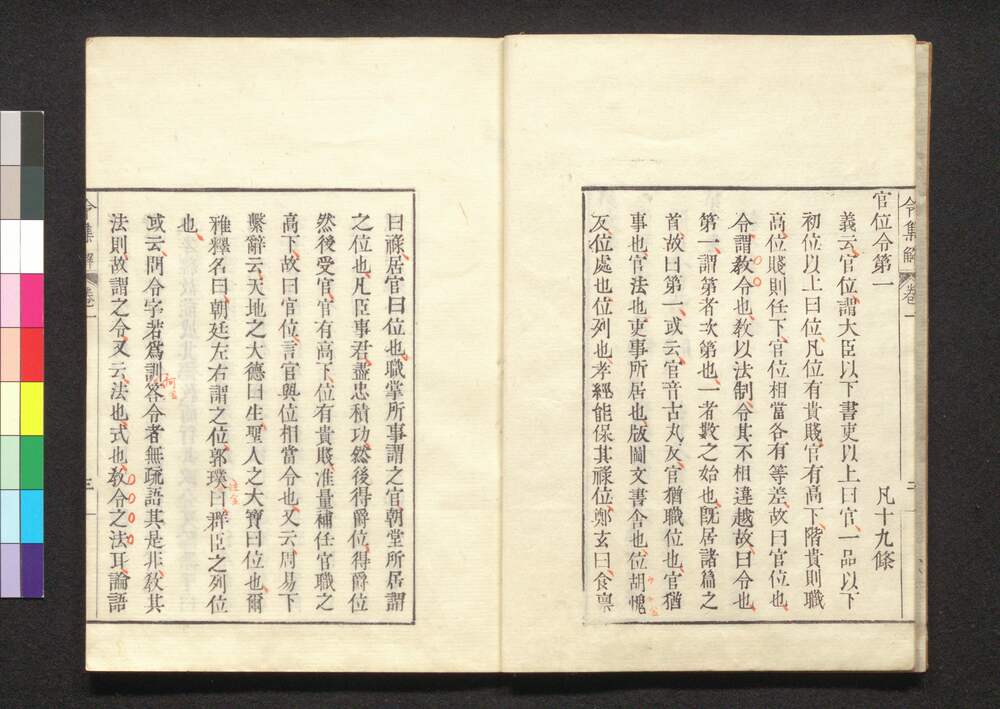 令集解 卷一
官位令第一 凡十九條
義云、官位、謂大臣以下書吏以上曰官、一品以下
初位以上曰位、凡位有貴賤、官有高下、階貴則職
高、位賤則任下、官位相當各有等差、故曰官位也、
令、謂教令也、教以法制、令其不相違越、故曰令也、
第一、謂第者次第也、一者數之始也、旣居諸篇之
首、故曰第一、或云、官音古丸反、官猶職位也、官猶
事也、官法也、吏事所居也、版圖文書舍也、位胡愧
反、位處也、位列也、孝經能保其祿位、鄭玄曰、食禀
曰祿、居官曰位也、職掌所事謂之官、朝堂所居謂
之位也、凡臣事君、盡忠積功、然後得爵位、得爵位
然後受官、官有高下、位有貴賤、准量補任官職之
高下、故曰官位、言官與位相當令也、又云、周易下
繫辭云、天地之大德曰生、聖人之大寶曰位也、爾
雅釋名曰、朝廷左右謂之位、郭璞曰、群臣之列位
也、
或云、問、令字若爲訓、答、令者無疏語、其是非、教其
法則、故謂之令、又云、法也、式也、教令之法耳、論語
令集解 卷一 三